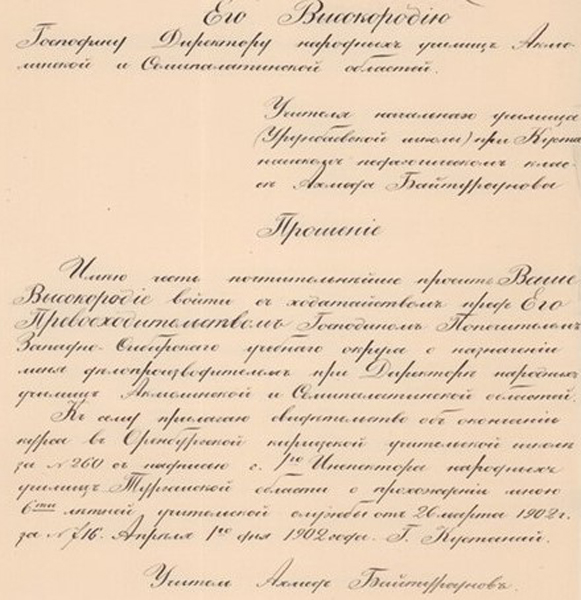 Его Высокородію
Господину Директору народныхъ училищъ Акмо-
линской и Семипалатинской областей.
Учителя начальнаго училища
(Урунбаевской школы) при Куста
найскомъ педагогическомъ клас-
сѣ Ахмеда Байтурсунова
Прошеніе
Имѣю честь почтительнѣйше просить Ваше
Высокородіе войти съ ходатайствомъ предъ Его
Превосходительствомъ Господиномъ Попечителемъ
Западно-Сибирскаго учебнаго округа о назначеніи
меня дѣлопроизводителемъ при Директорѣ народныхъ
училищъ Акмолинской и Семипалатинской областей.
Къ сему прилагаю свидѣтельство объ окончаніи
курса въ Оренбургской киргизской учительской школѣ
за №260 съ надписью г. 1го Инспектора народныхъ
училищъ Тургайской области о прохожденіи мною
6ти лѣтней учительской службы отъ 26 марта 1902 г.
за №716. Апрѣля 1го дня 1902 года. Г. Кустанай.
Учитель Ахмедъ Байтурсуновъ.